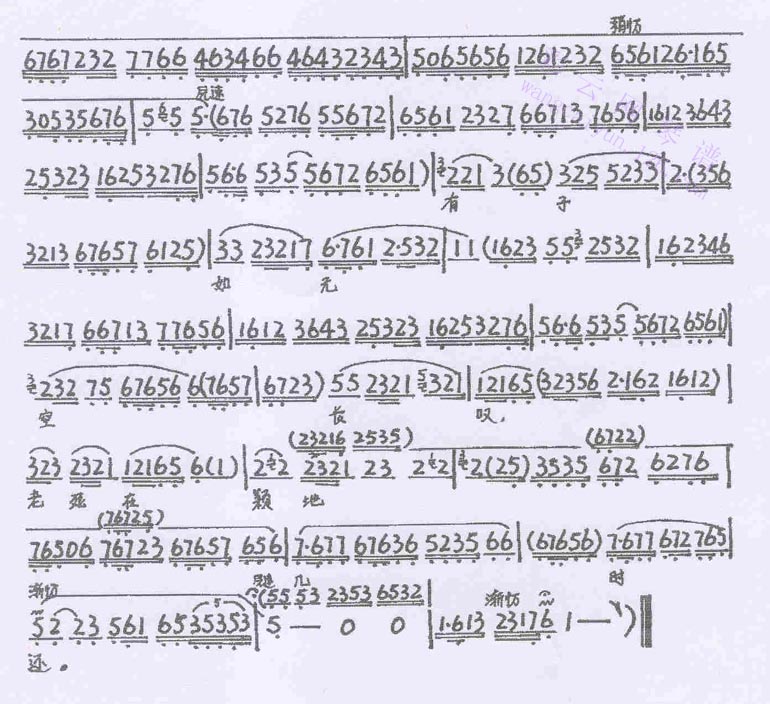 稍怡
6767232 7766 463466 46432343|5065656 1261232 656126·165
30535676|5 5 5·(676 5276 55672|6561 2327 66713 7656|1612 3643
25323 16253276|566 535 5672 6561)|221 3(65) 325 5233|2·(356
有 子
3213 67657 6125)|33 23217 6·761 2·532|11(1623 55 2532|162346
如 无
3217 66713 77656|1612 3643 25323 16253276|56·6 535 5672 6561)|
232 75 67656 6(7657|6723) 55 2321 321|12165(32356 2·162 1612)|
空 长 叹,
(23216 2535) (6722)
323 2321 12165 6(1)|2 2 2321 23 2 2|2(25) 3535 672 6276|
老 在 颗 地
(76725)
76506 76723 67657 656|7·677 67636 5235 66|(67656) 7·677 672765|
时
(55 53 2353 6532
52 23 561 6535353|5 — 0 0|1·613 23176 1—)‖
还。